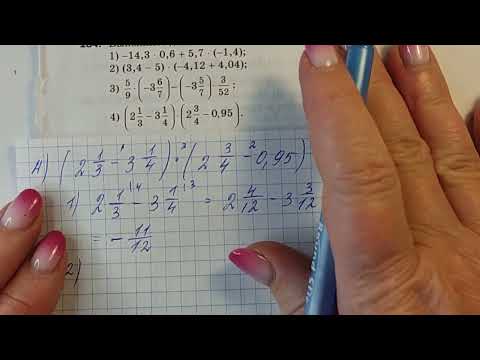 1) −14,3 · 0,6 + 5,7 · (−1,4);
2) (3,4 − 5) · (−4,12 + 4,04);
3) 5/9 · (−3 6/7) − (−3 5/7) · 3/52;
4) (2 1/3 − 3 1/4) · (2 3/4 − 0,95).
4) (2 1/3 −¹ 3 1/4) ·³ (2 3/4 −² 0,95)
1) 2 1/3 \4 − 3 1/4 \3 = 2 4/12 − 3 3/12
= − 11/12
2)